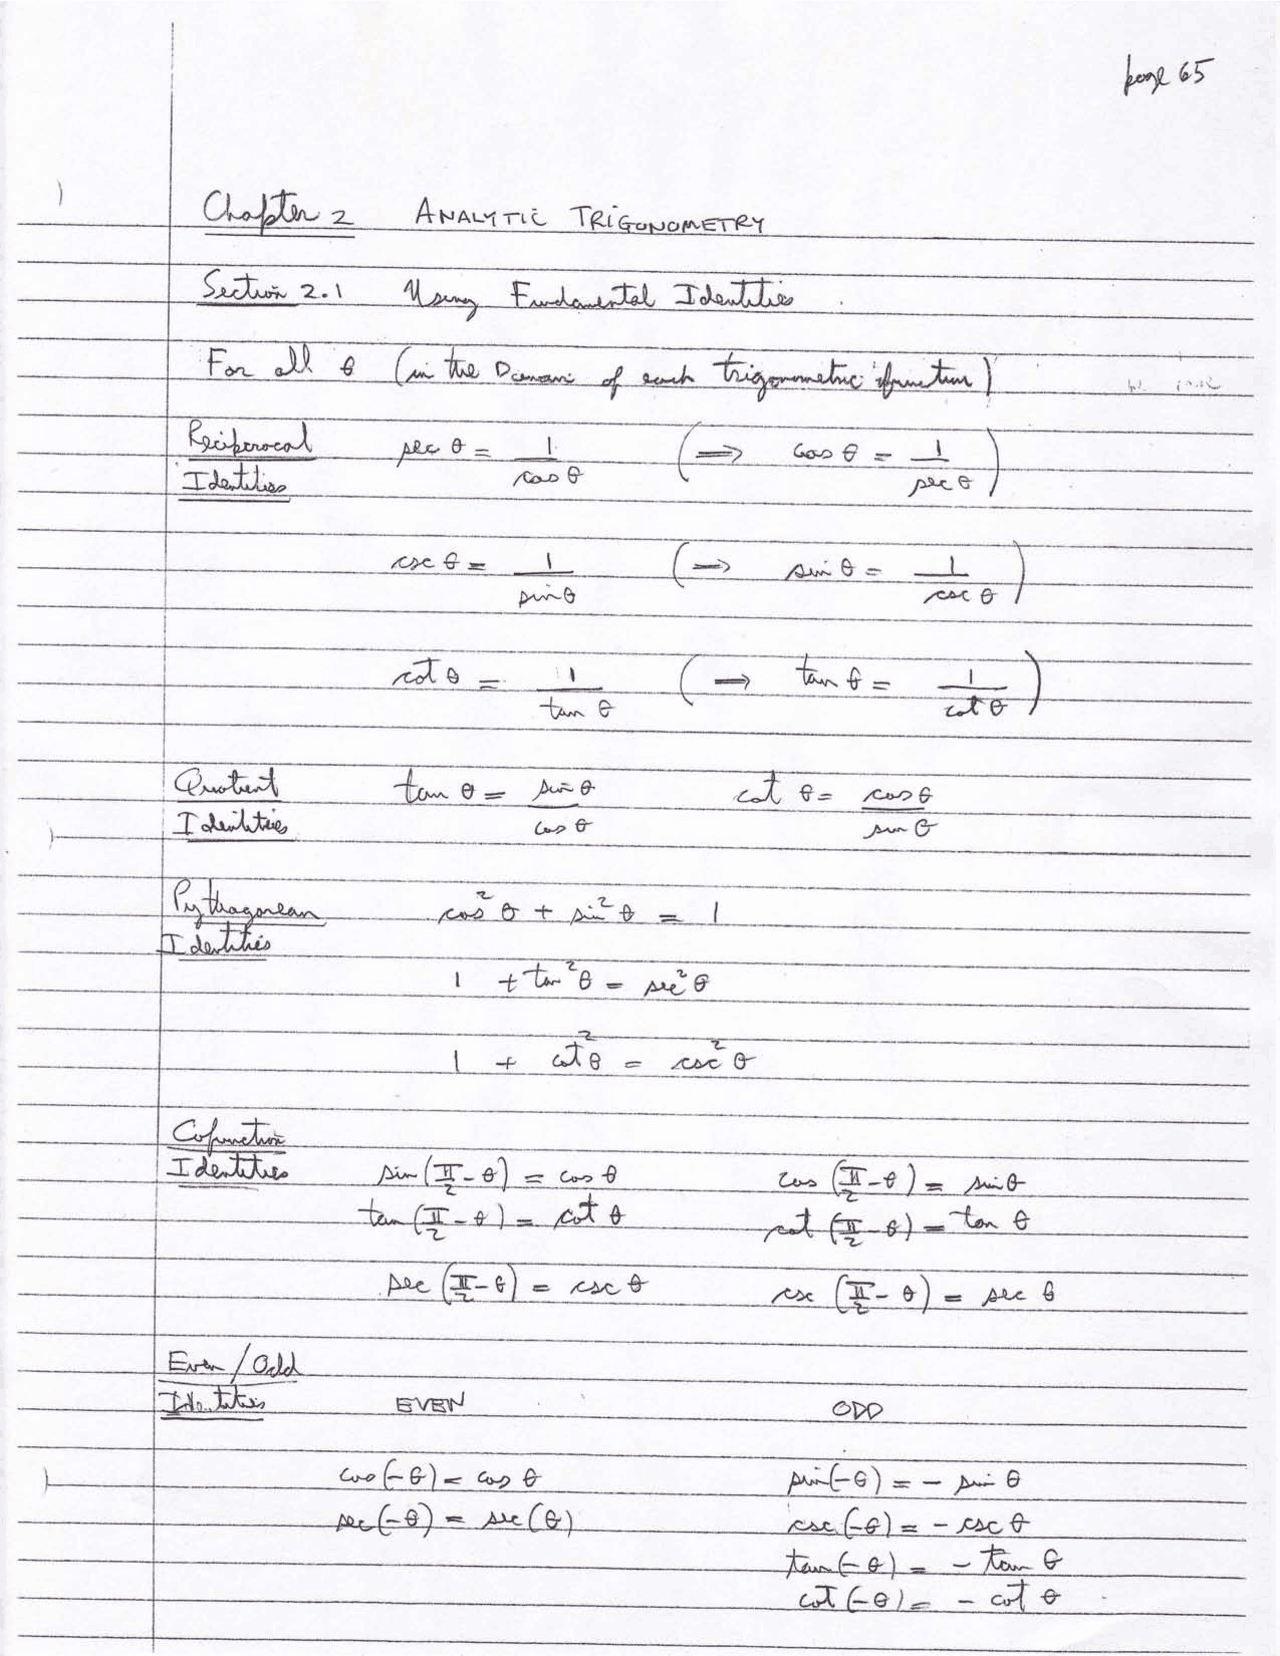 page 65
Chapter 2 ANALYTIC TRIGONOMETRY
Section 2.1 Using Fundamental Identities
For all θ (in the Domain of each trigonometric function)
Reciprocal sec θ = 1/cos θ (⟹ cos θ = 1/sec θ)
Identities
csc θ = 1/sin θ (⟹ sin θ = 1/csc θ)
cot θ = 1/tan θ (⟹ tan θ = 1/cot θ)
Quotient tan θ = sin θ/cos θ cot θ = cos θ/sin θ
Identities
Pythagorean cos² θ + sin² θ = 1
Identities
1 + tan² θ = sec² θ
1 + cot² θ = csc² θ
Cofunction
Identities sin(π/2 - θ) = cos θ cos(π/2 - θ) = sin θ
tan(π/2 - θ) = cot θ cot(π/2 - θ) = tan θ
sec(π/2 - θ) = csc θ csc(π/2 - θ) = sec θ
Even/Odd
Identities EVEN ODD
cos(-θ) = cos θ sin(-θ) = - sin θ
sec(-θ) = sec(θ) csc(-θ) = - csc θ
tan(-θ) = - tan θ
cot(-θ) = - cot θ